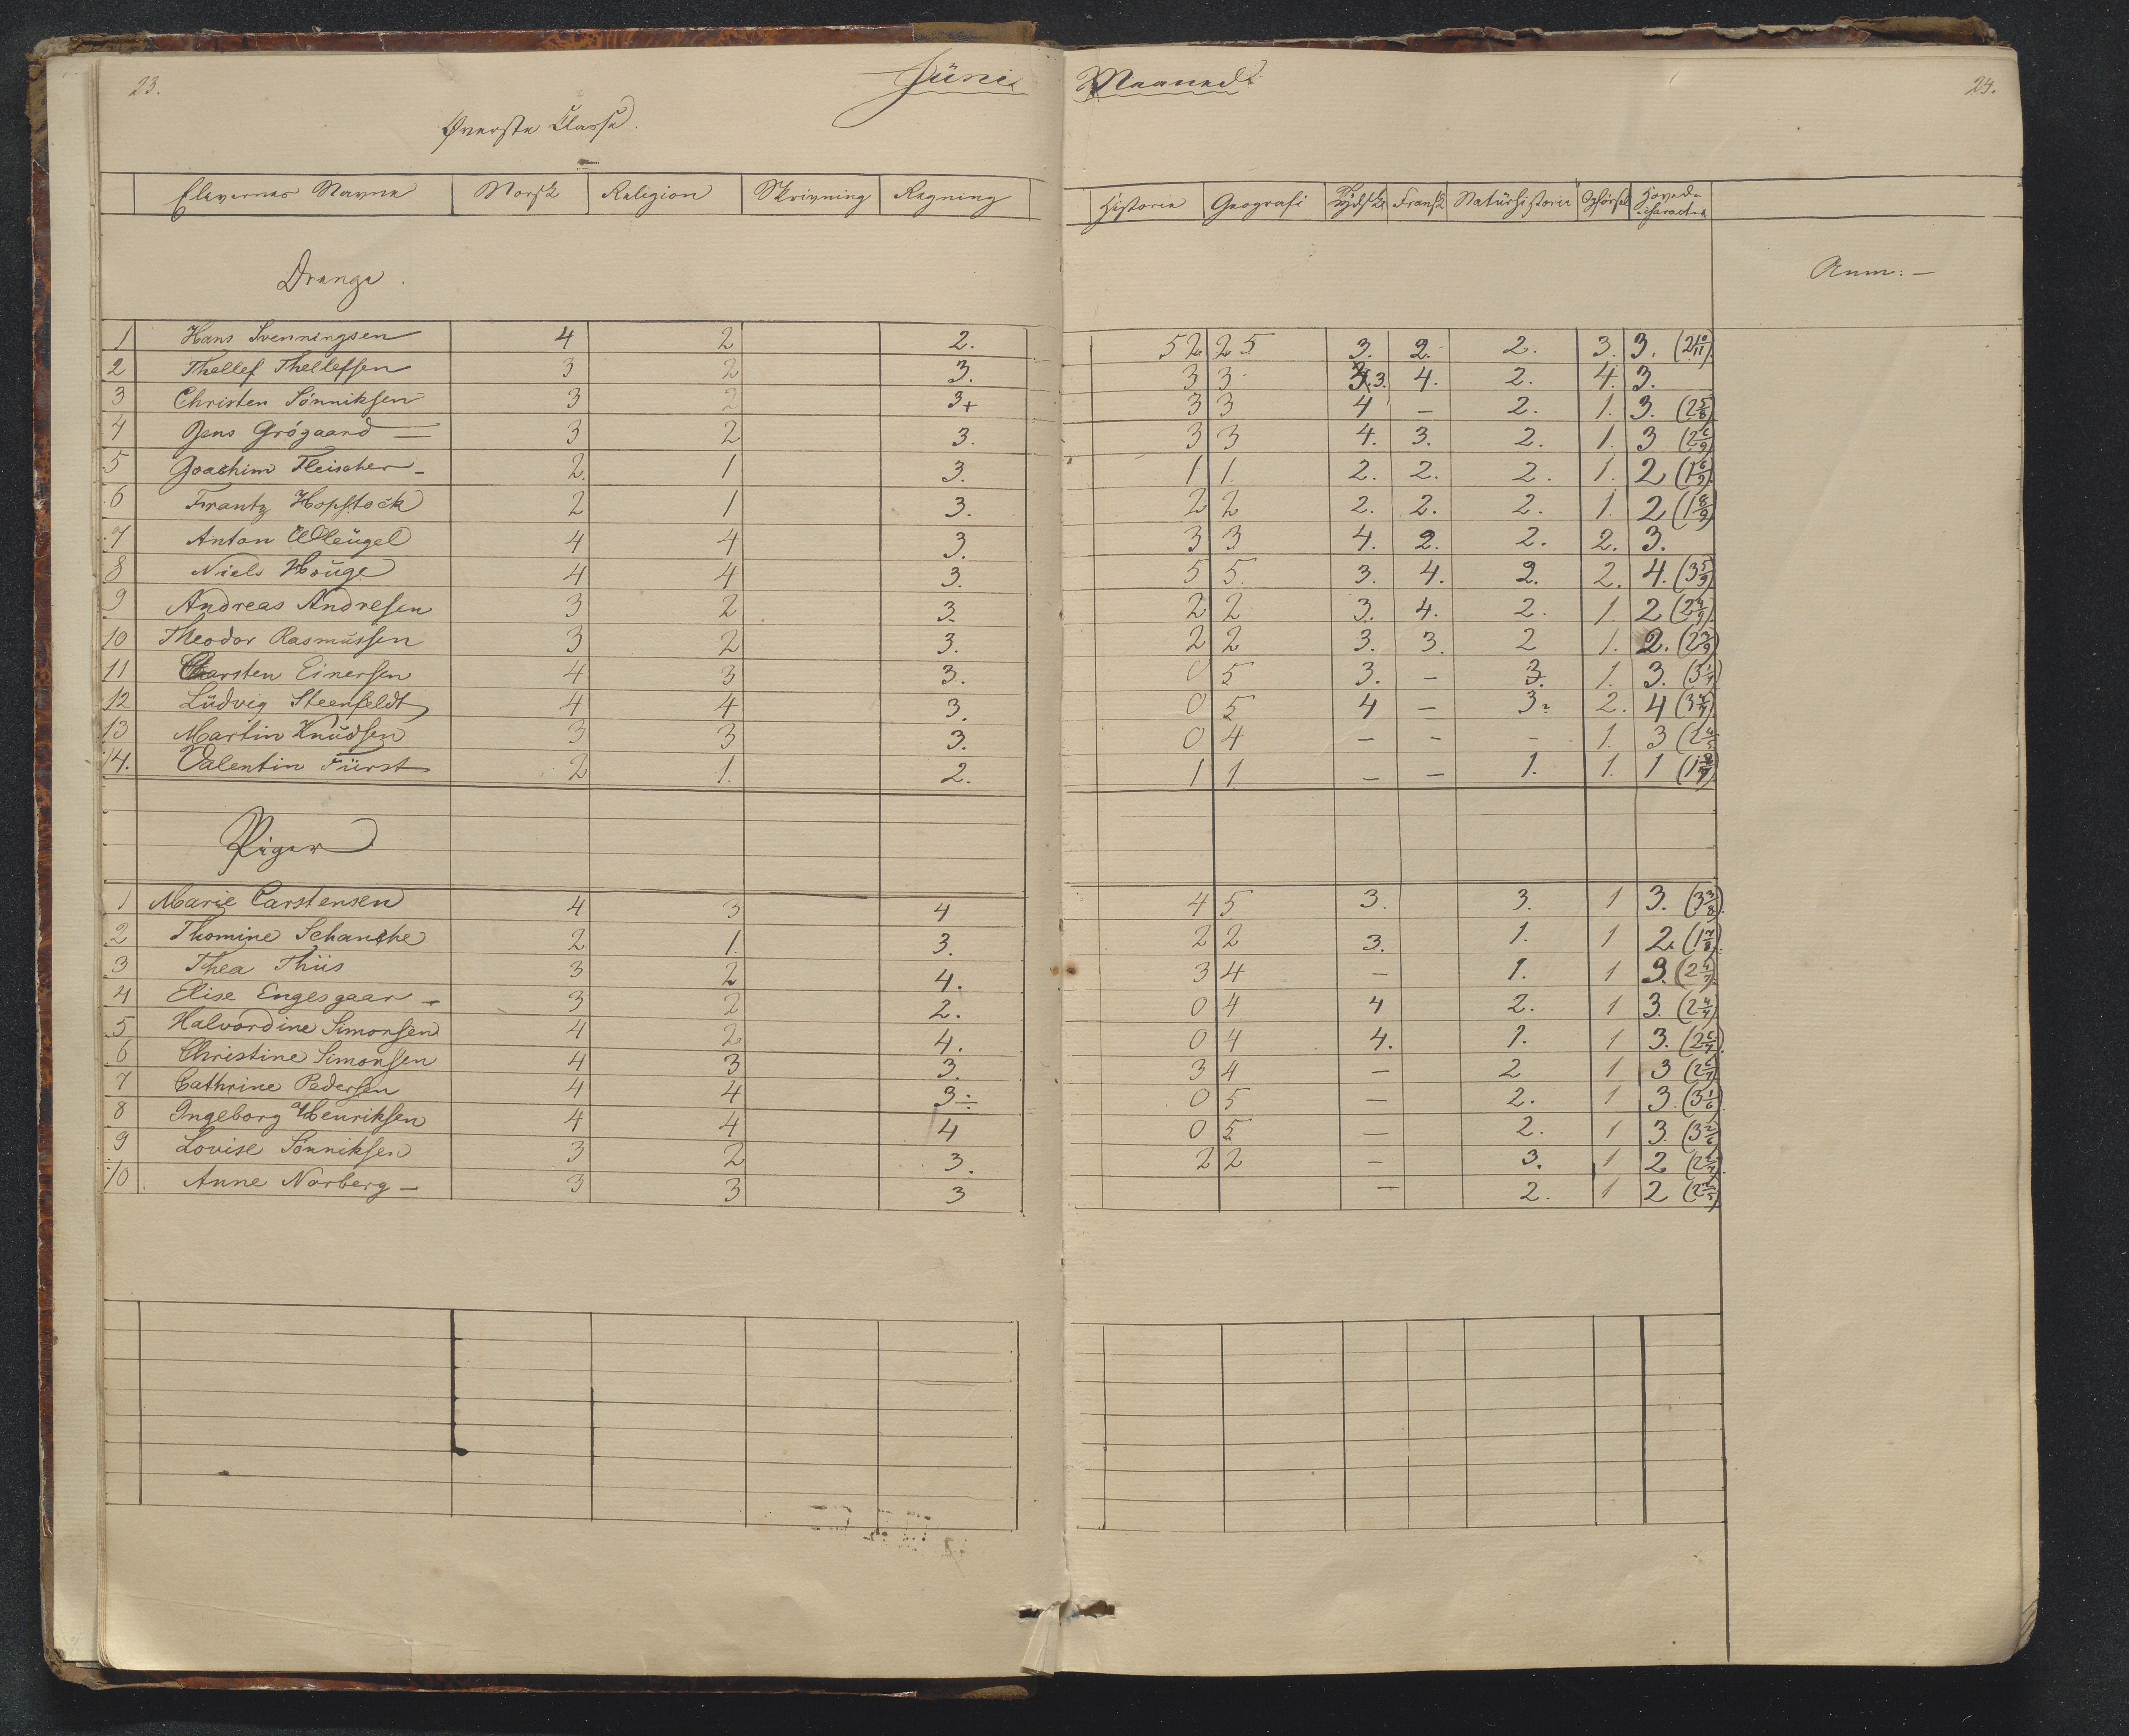 23. Juni Maaned 24.
Øverste Classe.
Elevernes Navne Norsk Religion Skrivning Regning Historie Geografi Tydske Fransk Naturhistorie Opførsel Hoved-character
Drenge. Anm: —
1 Hans Svenningsen 4 2 2. 52 25 3. 2. 2. 3. 3. (2 10/11)
2 Thellef Thellefsen 3 2 3. 3 3 3. 4. 2. 4. 3.
3 Christen Sönniksen 3 2 3+ 3 3 4 — 2. 1. 3. (2 5/8)
4 Jens Grögaard — 3 2 3. 3 3 4. 3. 2. 1. 3 (2 6/9)
5 Joachim Fleischer — 2. 1 3. 1 1. 2. 2. 2. 1. 2 (1 6/9)
6 Frantz Hopstock 2 1 3. 2 2 2. 2. 2. 1. 2 (1 8/9)
7 Anton Wleügel 4 4 3. 3 3 4. 2. 2. 2. 3.
8 Niels Houge 4 4 3. 5 5. 3. 4. 2. 2. 4. (3 5/9)
9 Andreas Andresen 3 2 3. 2 2 3. 4. 2. 1. 2 (2 4/9)
10 Theodor Rasmussen 3 2 3. 2 2 3. 3. 2 1. 2. (2 3/9)
11 Carsten Einersen 4 3 3. 0 5 3. — 3. 1. 3. (3 1/7)
12 Lüdvig Steenfeldt 4 4 3. 0 5 4 — 3. 2. 4 (3 4/7)
13 Martin Knüdsen 3 3 3. 0 4 — - - 1. 3 (2 4/5)
14. Valentin Fürst 2 1. 2. 1 1. — — 1. 1. 1 (1 2/7)
Piger
1 Marie Carstensen 4 3 4 4 5 3. 3. 1 3. (3 3/8).
2 Thomine Schanche 2 1. 3. 2 2 3. 1. 1 2. (1 7/8).
3 Thea Thiis 3 2 4. 3 4 — 1. 1 3. (2 4/7)
4 Elise Engesgaar — 3 2 2. 0 4 4 2. 1 3. (2 4/7)
5 Halvordine Simonsen 4 2 4. 0 4 4. 1. 1 3. (2 6/7).
6 Christine Simonsen 4 3 3. 3 4 — 2 1 3 (2 6/7)
7 Cathrine Pedersen 4 4 3÷ 0 5 — 2. 1 3. (3 1/6).
8 Ingeborg Henriksen 4 4 4 0 5 — 2. 1 3. (3 2/6)
9 Lovise Sönniksen 3 2 3. 2 2 — 3. 1 2
10 Anne Norberg — 3 3 3 — 2. 1 2 (2 2/5)